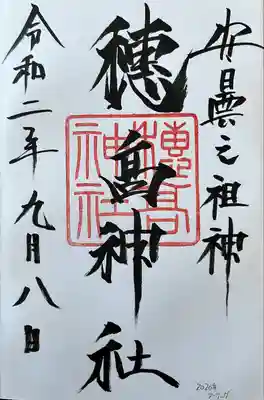 安曇之祖神
穗髙神社
穂高
神社
令和二年九月八日
2020年